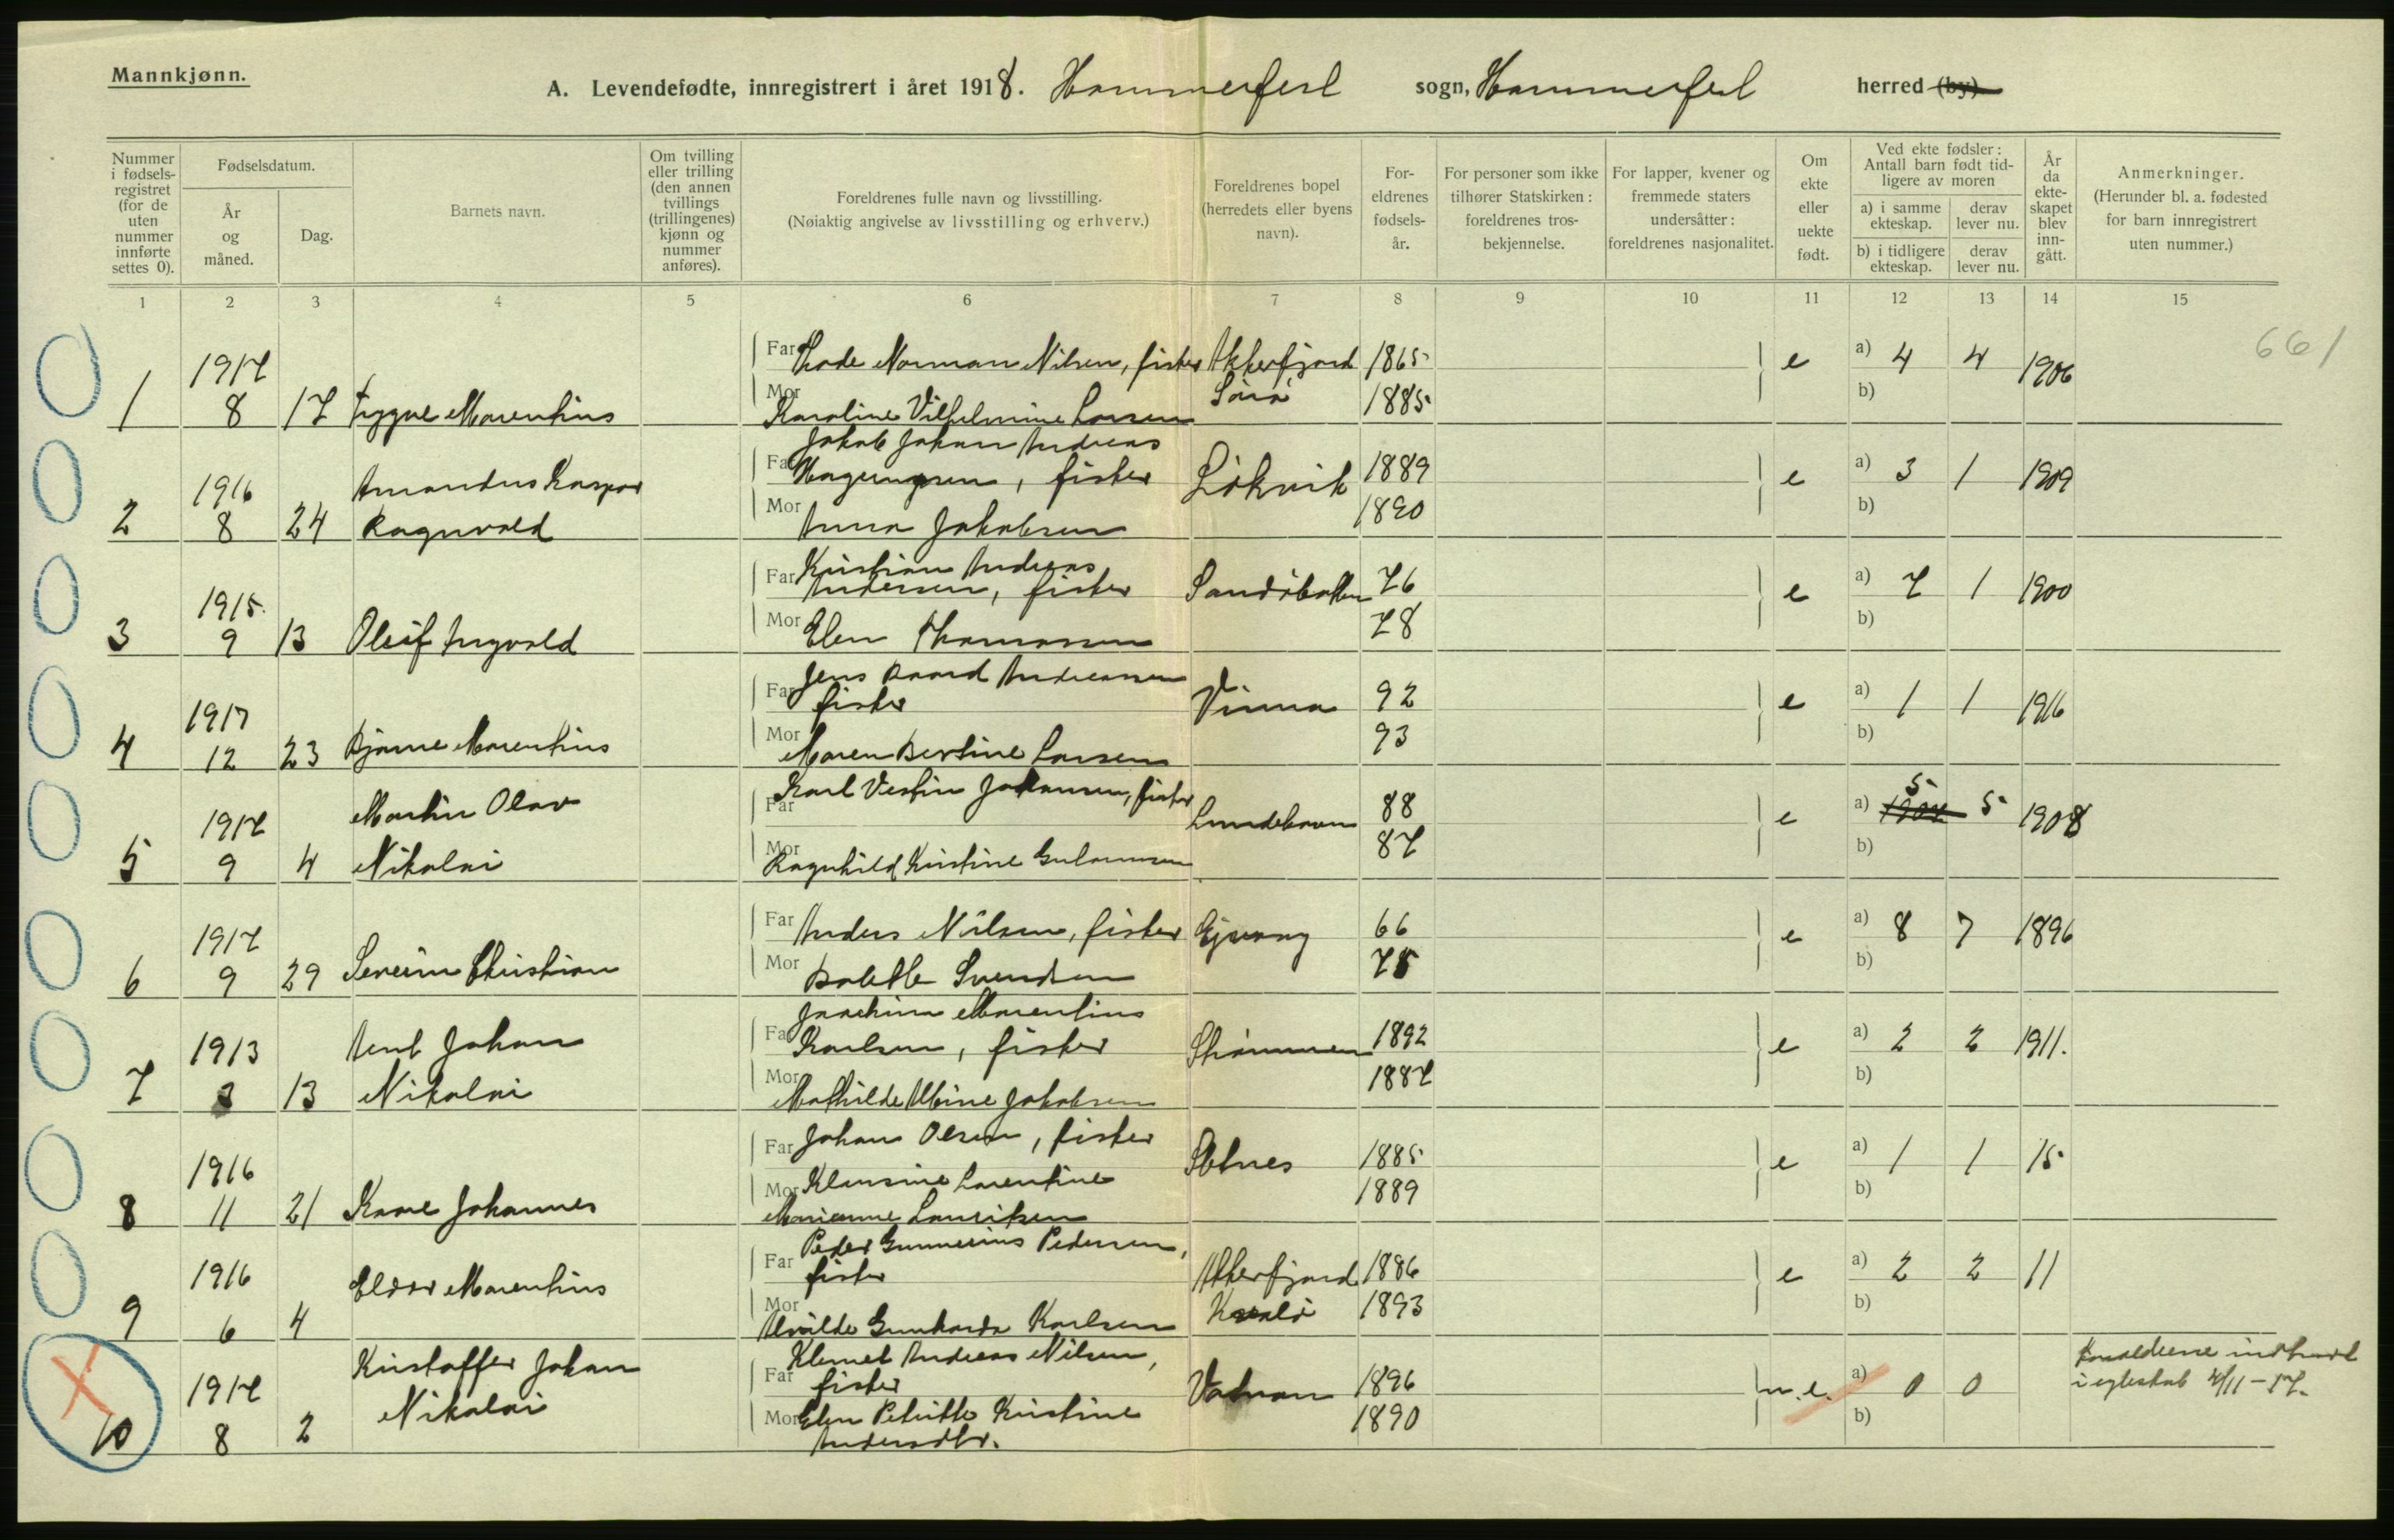 Mannkjønn.
A. Levendefødte, innregistrert i året 1918. Hammerfest sogn, Hammerfest herred (by).
Nummer i fødsels-registret (for de uten nummer innførte settes 0).
Fødselsdatum.
År og måned.
Dag.
Barnets navn.
Om tvilling eller trilling (den annen tvillings (trillingenes) kjønn og nummer anføres).
Foreldrenes fulle navn og livsstilling.
(Nøiaktig angivelse av livsstilling og erhverv.)
Foreldrenes bopel (herredets eller byens navn).
For-eldrenes fødsels-år.
For personer som ikke tilhører Statskirken: foreldrenes tros-bekjennelse.
For lapper, kvener og fremmede staters undersåtter: foreldrenes nasjonalitet.
Om ekte eller uekte født.
Ved ekte fødsler: Antall barn født tid-ligere av moren
a) i samme ekteskap.
derav lever nu.
b) i tidligere ekteskap.
derav lever nu.
År da ekte-skapet blev inn-gått.
Anmerkninger.
(Herunder bl. a. fødested for barn innregistrert uten nummer.)
1 2 3 4 5 6 7 8 9 10 11 12 13 14 15
661
1917 Far Norman Nilsen, fisker Akkerfjord 1865 e a) 4 4 1906
1 8 17 Trygve Marentius Mor Karoline Vilhelmine Larsen Sørø 1885 b)
Jakob Johan Andreas
1916 Amandus Kaspar Far Magnussen, fisker Lökvik 1889 e a) 3 1 1909
2 8 24 Ragnvald Mor Anna Jakobsen 1890 b)
Kristian Andreas
1915 Far Andersen, fisker Sandöbotten 76 e a) 7 1 1900
3 9 13 Oleif Ingvald Mor Elen Thomassen 78 b)
Jens Daard Andreassen
1917 Far fisker Vinna 92 e a) 1 1 1916
4 12 23 Bjarne Marentius Mor Maren Bertine Larsen 93 b)
1917 Martin Olav Far Karl Vestin Johansen, fisker Lundehavn 88 e a) 5 5 1908
5 9 4 Nikolai Mor Ragnhild Kristine 87 b)
1917 Far Anders Nilsen, fisker 66 e a) 8 7 1896
6 9 29 Severin Christian Mor Bolette Svendsen 75 b)
Joachim Marentius
1913 Arnt Johan Far Karlsen, fisker Strømmen 1892 e a) 2 2 1911.
7 3 13 Nikolai Mor Mathilde Albine Jakobsen 1887 b)
1916 Far Johan Olsen, fisker Sletnes 1885 e a) 1 1 15
8 11 21 Kaare Johannes Mor Klensine Laurentine 1889 b)
Marianne Lauritsen
Peder Gunnerius Pedersen,
1916 Eldor Marentius Far fisker Akkerfjord 1886 e a) 2 2 11
9 6 4 Mor Alvilde Gunharda Karlsen Kvalö 1893 b)
Kristoffer Johan Klemet Andreas Nilsen, Forældrene indtraadt
1917 Nikolai Far fisker Vatnan 1896 u.e. a) 0 0 i egteskab 4/11-17.
10 8 2 Mor Elen Petritte Kristine 1890 b)
Andersdtr.